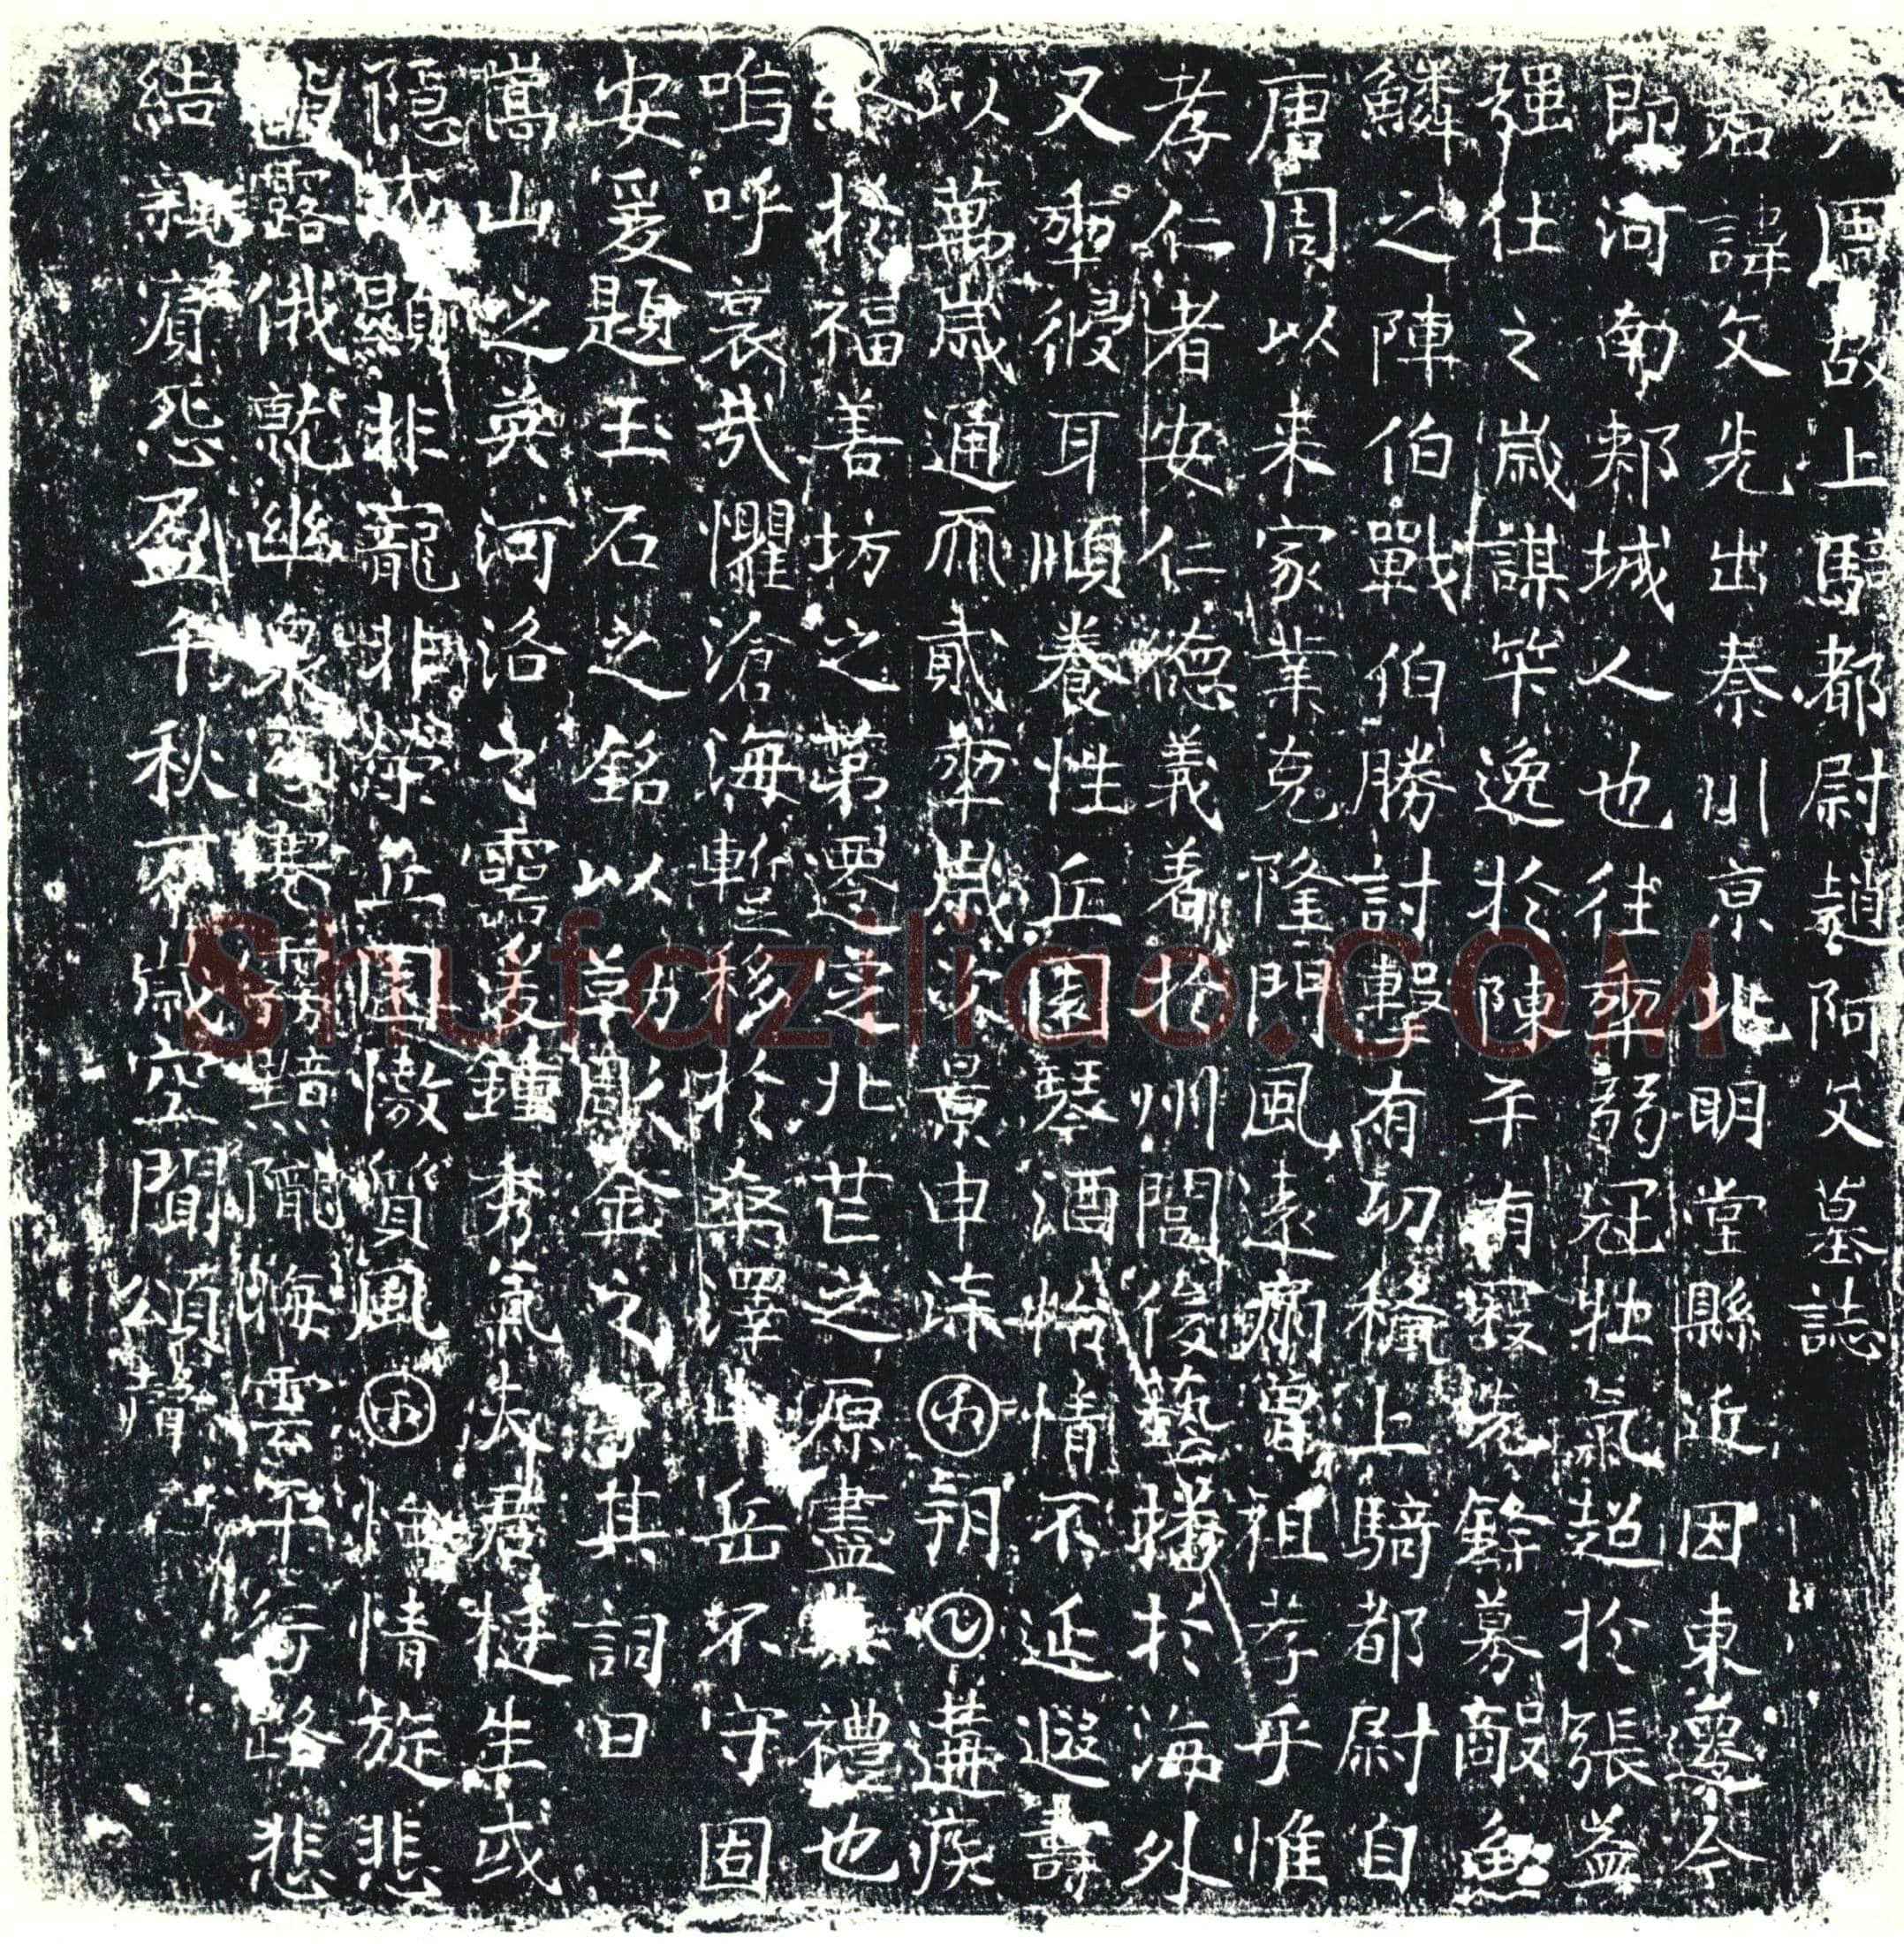 周故上騎都尉趙阿文墓誌
君諱文先出秦川京兆明堂縣近因東遷今
即河南郟城人也往𠡦弱冠壯氣超於張益
强仕之歲謀笇逸於陳平有寇先鋒募敵魚
鱗之陣伯戰伯勝討擊有功𥠢上騎都尉自
唐周以来家業克隆門風遠肅曾祖孝乎惟
孝仁者安仁德義著於州閭俊藝播於海外
又𠡦侵耳順養性丘園琴酒怡情不延遐壽
以萬歲通𠀑貳𠡦歲次景申柒囝朔𡆠遘疾
終於福善坊之第遷定北芒之原盡其禮也
嗚呼哀哉懼滄海暫移於桑澤山岳不守固
安爰題玉石之銘以草彫金之字其詞曰
嵩山之英河洛之靈爰鍾秀氣夫君挺生或
隱或顯非寵非榮丘園憿質風囝悔情旋悲
露俄就幽泉霧黯隴晦雲平行路悲
結親賓怨盈千秋万歲空聞頌聲
Shufaziliao.COM